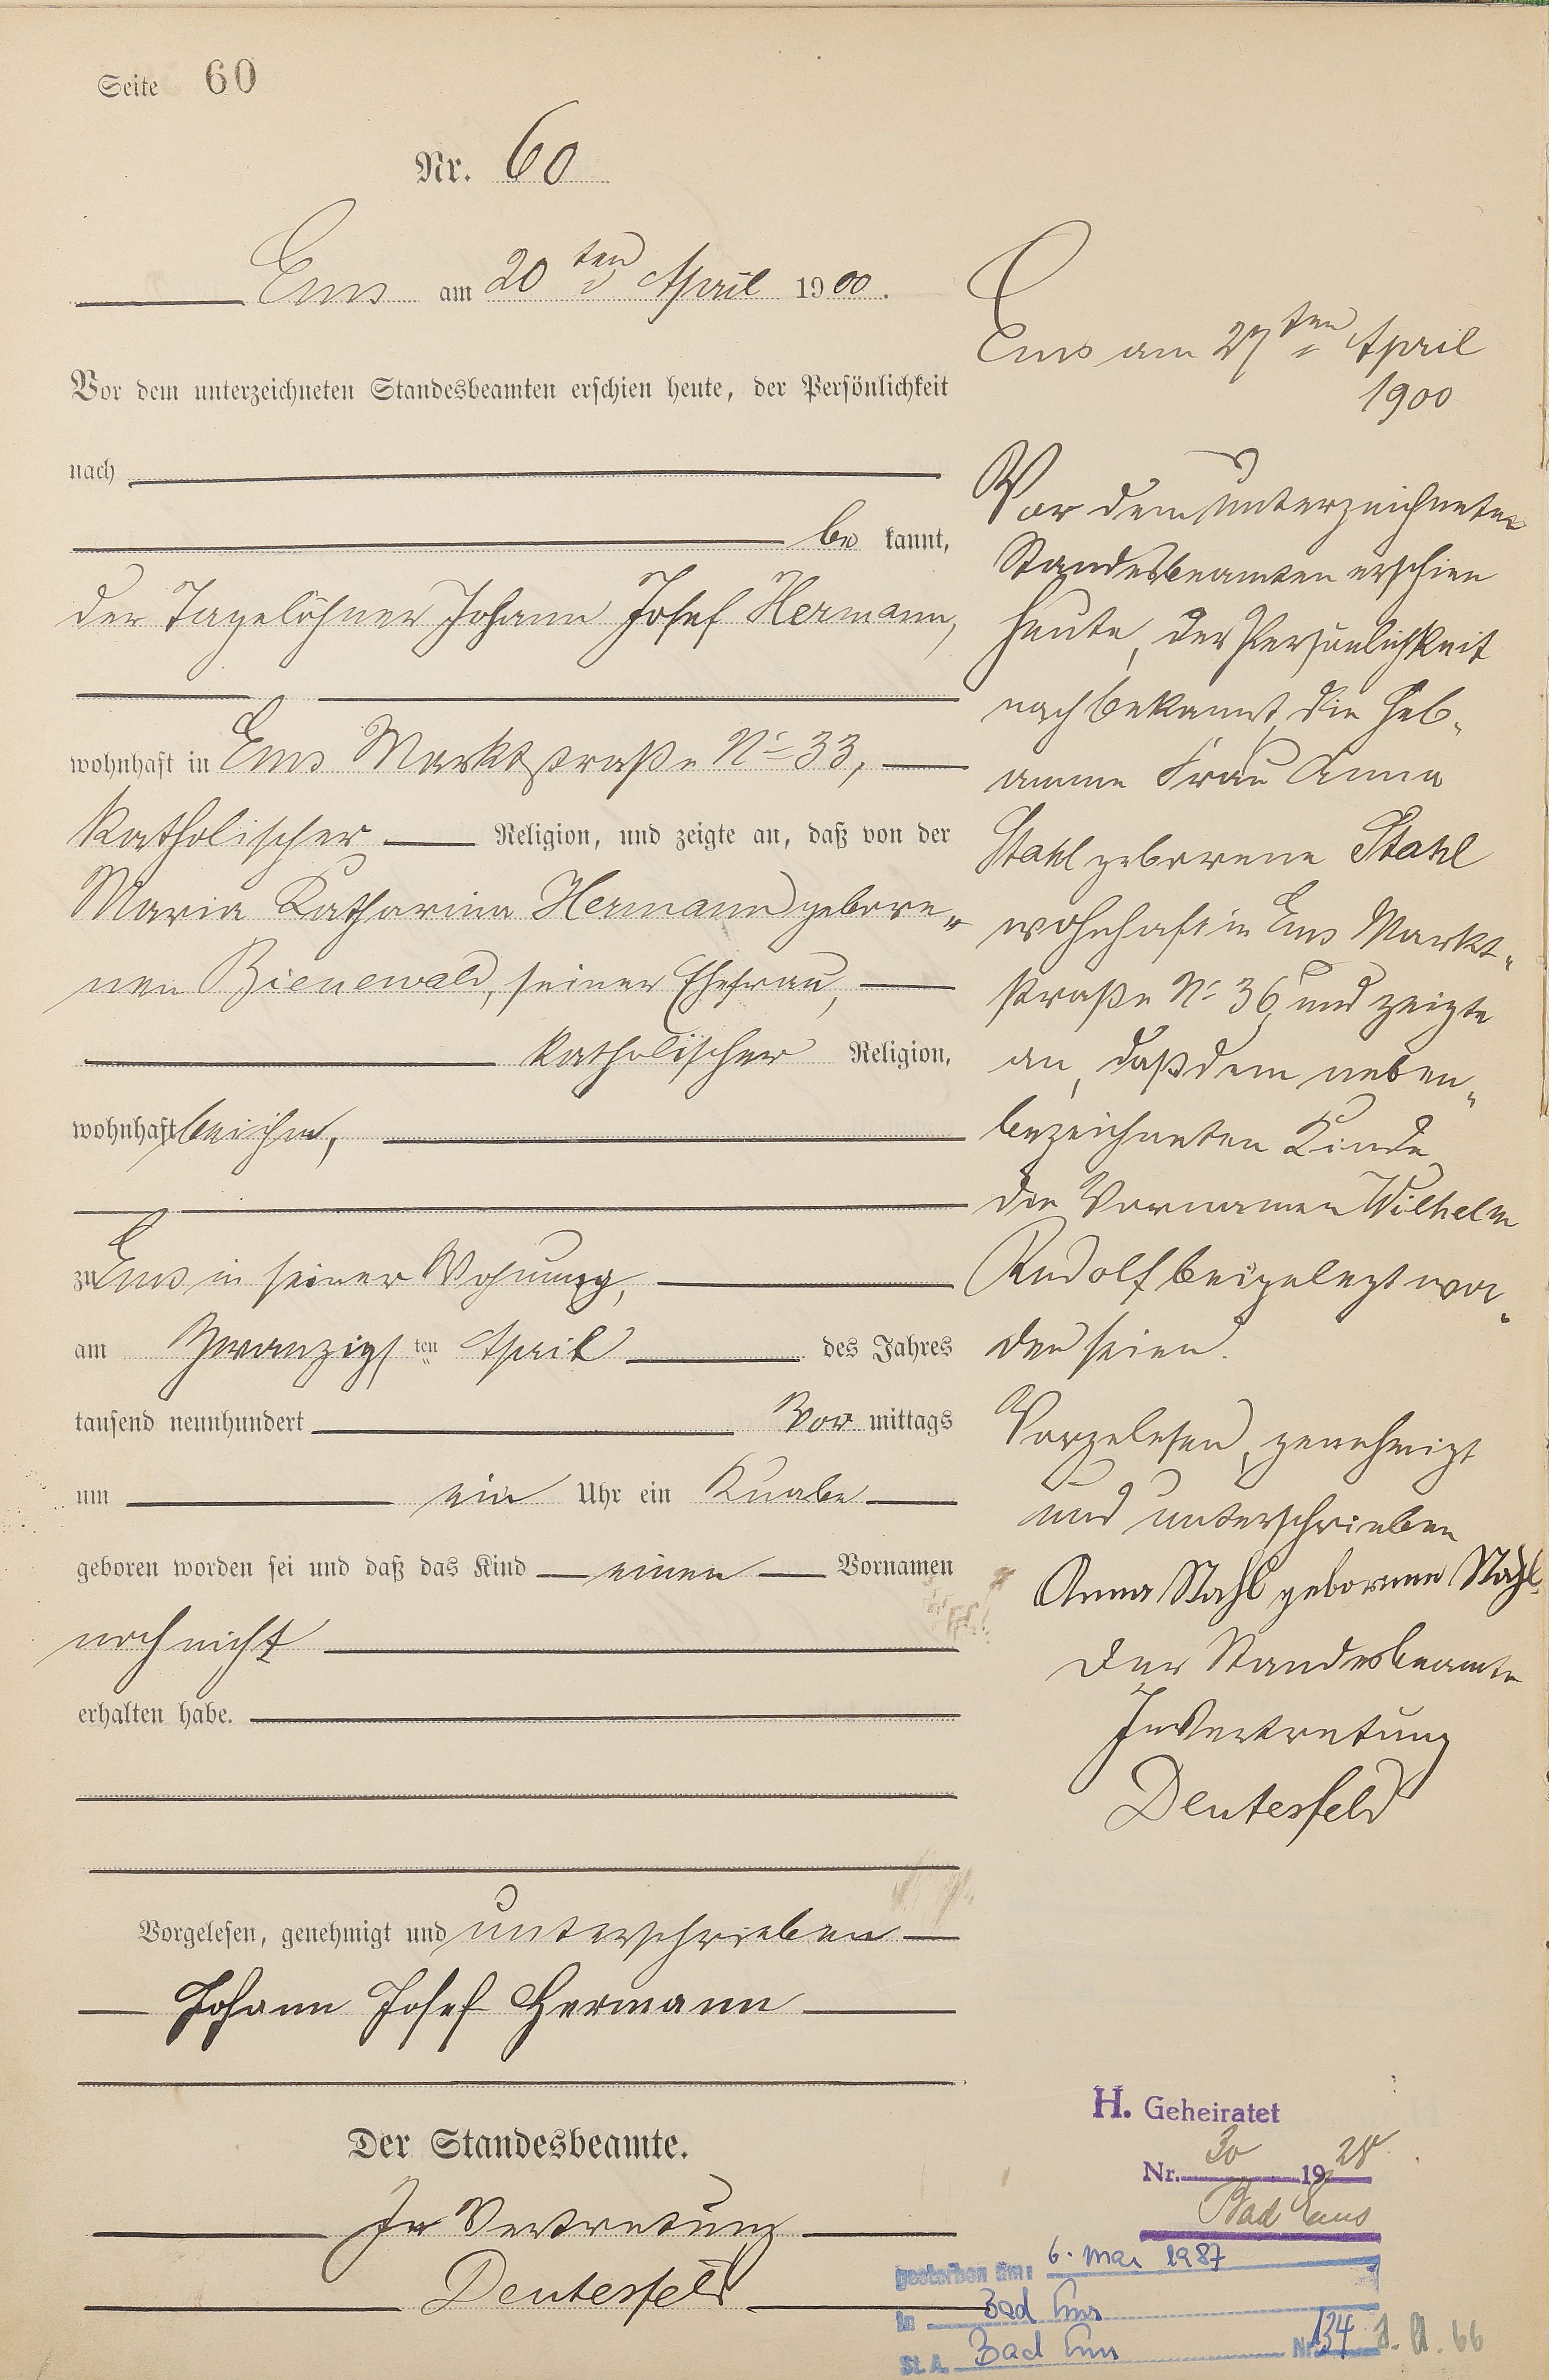 Seite 60
Nr. 60
Ems am 20ten April 1900.
Vor dem unterzeichneten Standesbeamten erschien heute, der Persönlichkeit
nach
be kannt,
der Tagelöhner Johann Josef Hermann,
wohnhaft in Ems Marktstraße No 33,
katholischer Religion, und zeigte an, daß von der
Maria Katharina Hermann gebore„
nen Bienewald, seiner Ehefrau,
katholischer Religion,
wohnhaft bei ihm,
zu Ems in seiner Wohnung,
am Zwanzigsten April des Jahres
tausend neunhundert Vor mittags
um ein Uhr ein Knabe
geboren worden sei und daß das Kind einen Vornamen
noch nicht
erhalten habe.
Vorgelesen, genehmigt und unterschrieben
Johann Josef Hermann
Der Standesbeamte.
In Vertretung
Deutesfeld
Ems am 27ten April
1900
Vor dem unterzeichneten
Standesbeamten erschien
heute, der Persönlichkeit
nach bekannt, die Heb„
amme Frau Anna
Stahl geborene Stahl
wohnhaft in Ems Markt„
straße No 36, und zeigte
an, daß dem neben„
bezeichneten Kinde
die Vornamen Wilhelm
Rudolf beigelegt wor„
den seien.
Vorgelesen, genehmigt
und unterschrieben
Anna Stahl geborene Stahl.
Der Standesbeamte
In Vertretung
Deutesfeld
H. Geheiratet
Nr. 30 1928
Bad Ems
gestorben am: 6. Mai 1987
in Bad Ems
St. A. Bad Ems Nr. 134